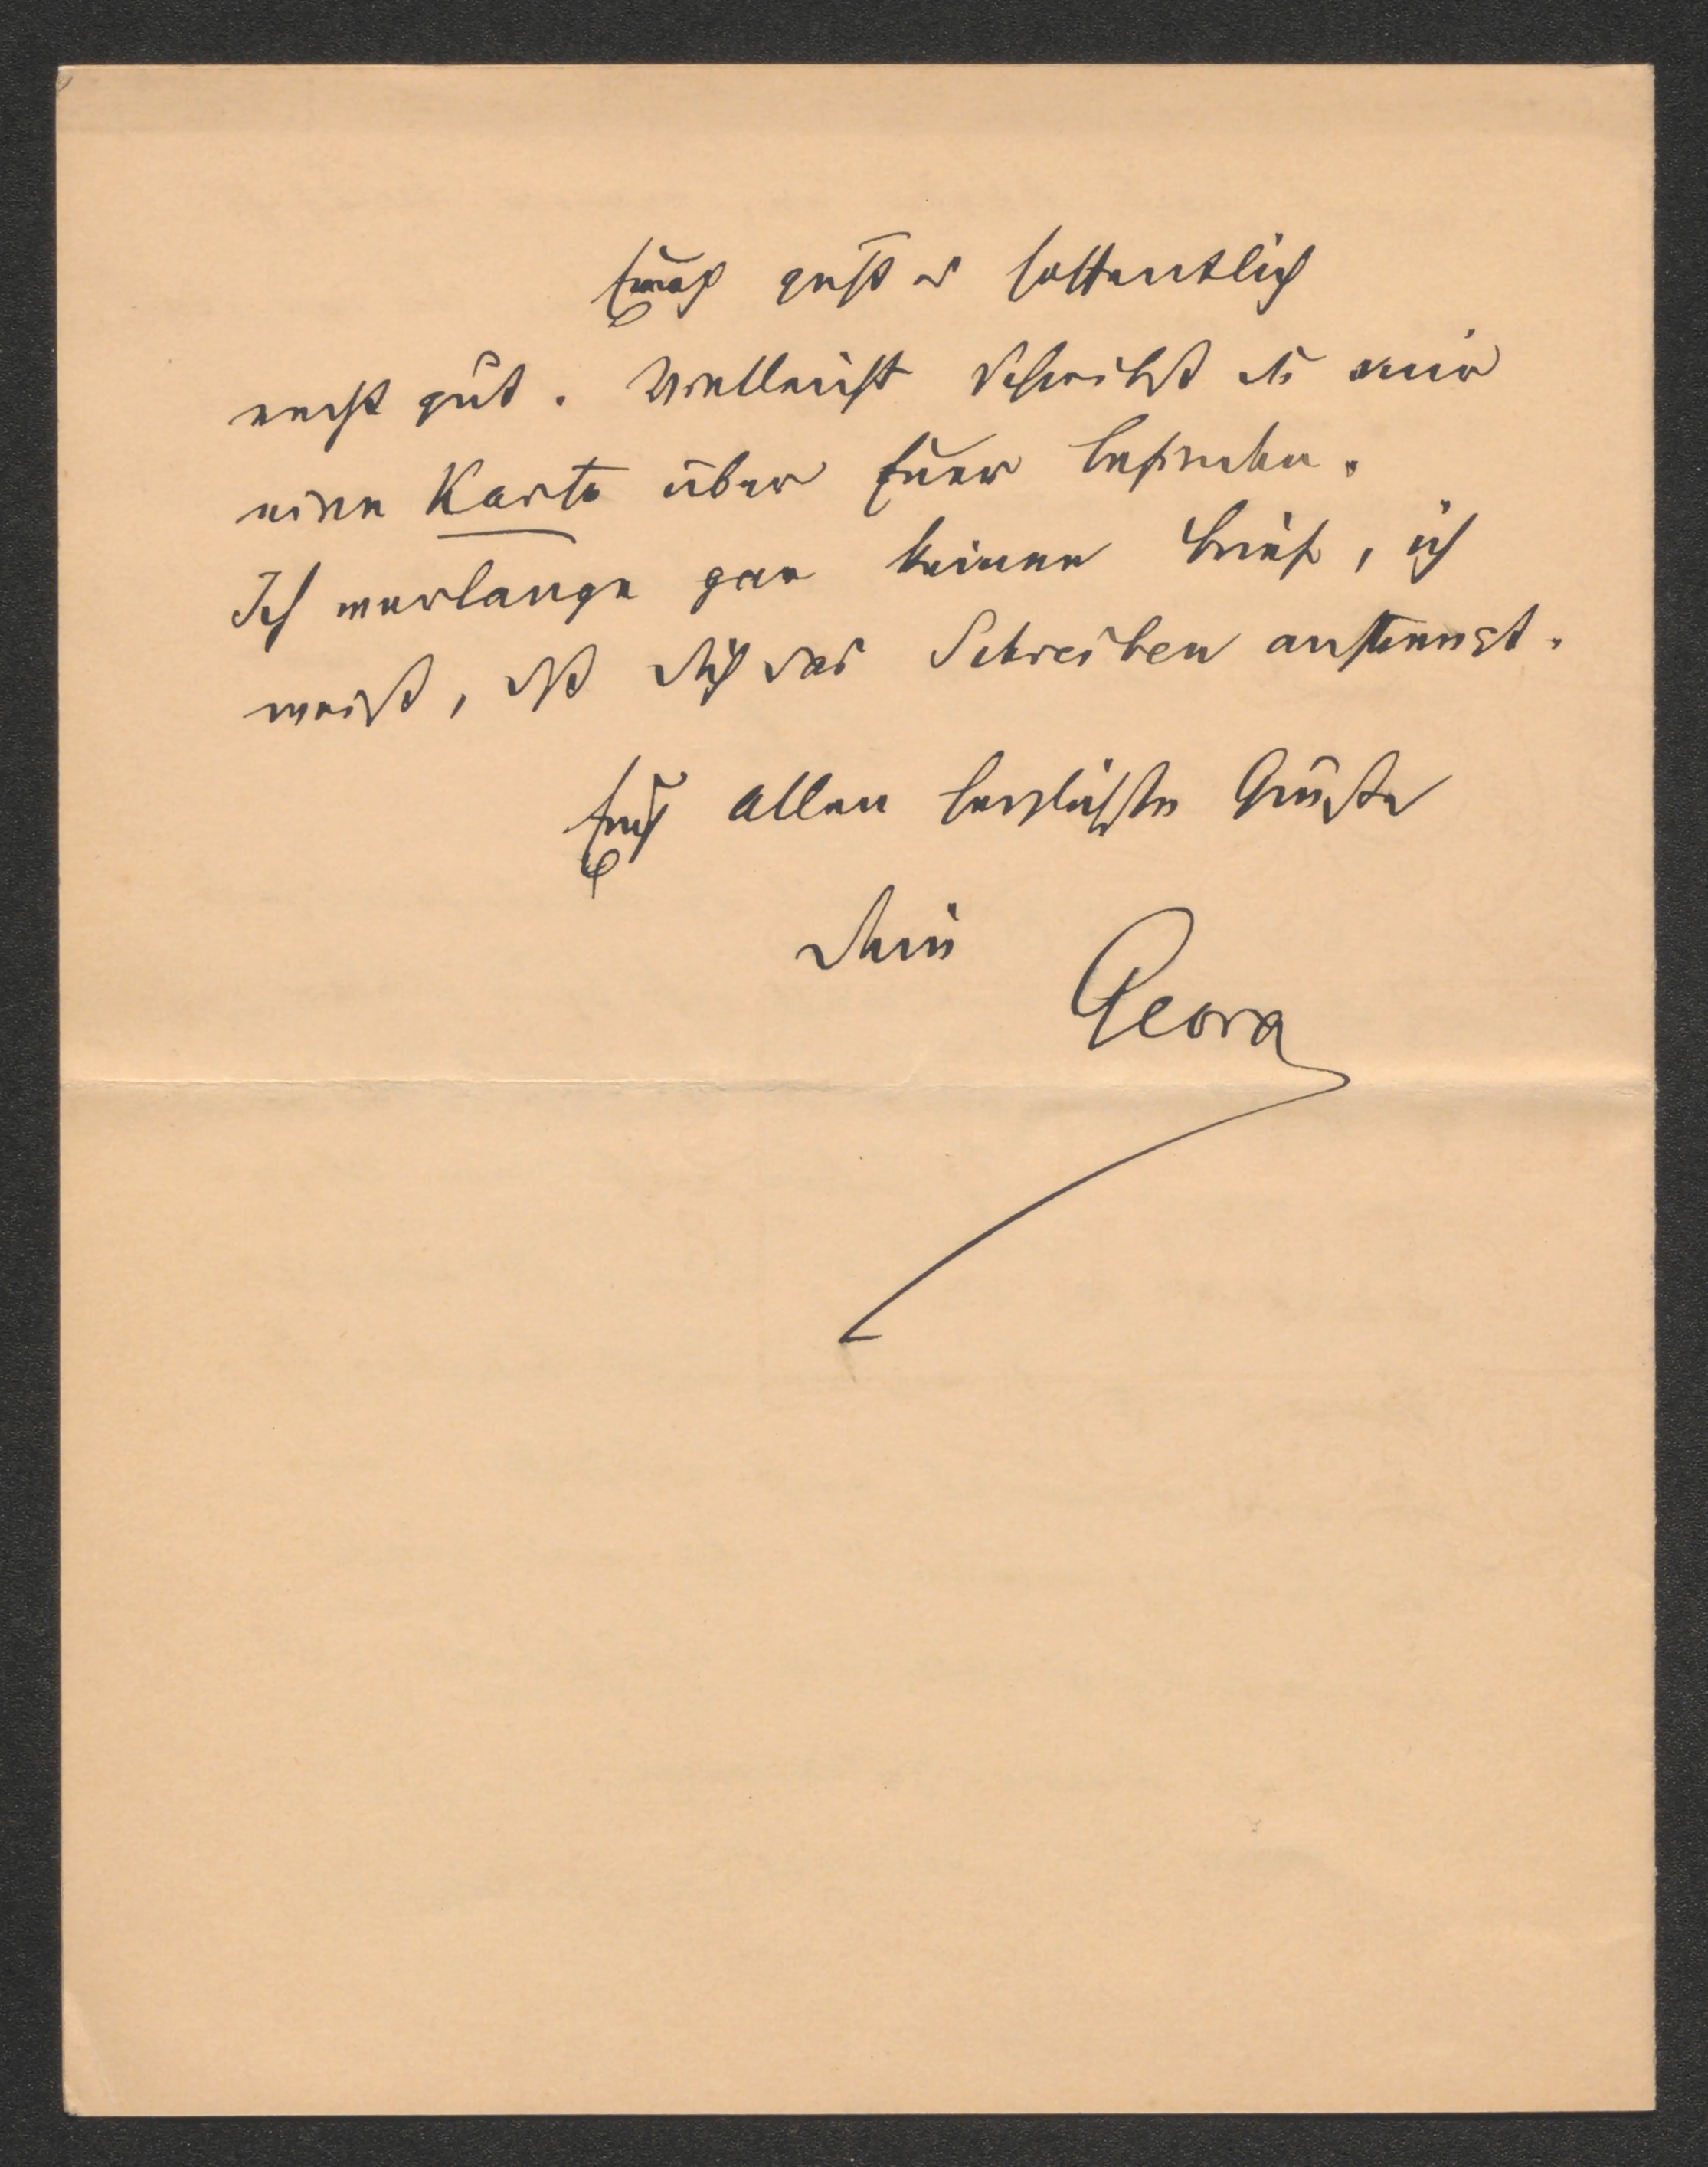 Euch geht es hoffentlich
recht gut. Vielleicht schreibst du mir
eine Karte über Euer Befinden.
Ich verlange gar keinen Brief, ich
weiß, daß dich das Schreiben anstrengt.
Euch allen herzlichste Grüße
dein
Georg